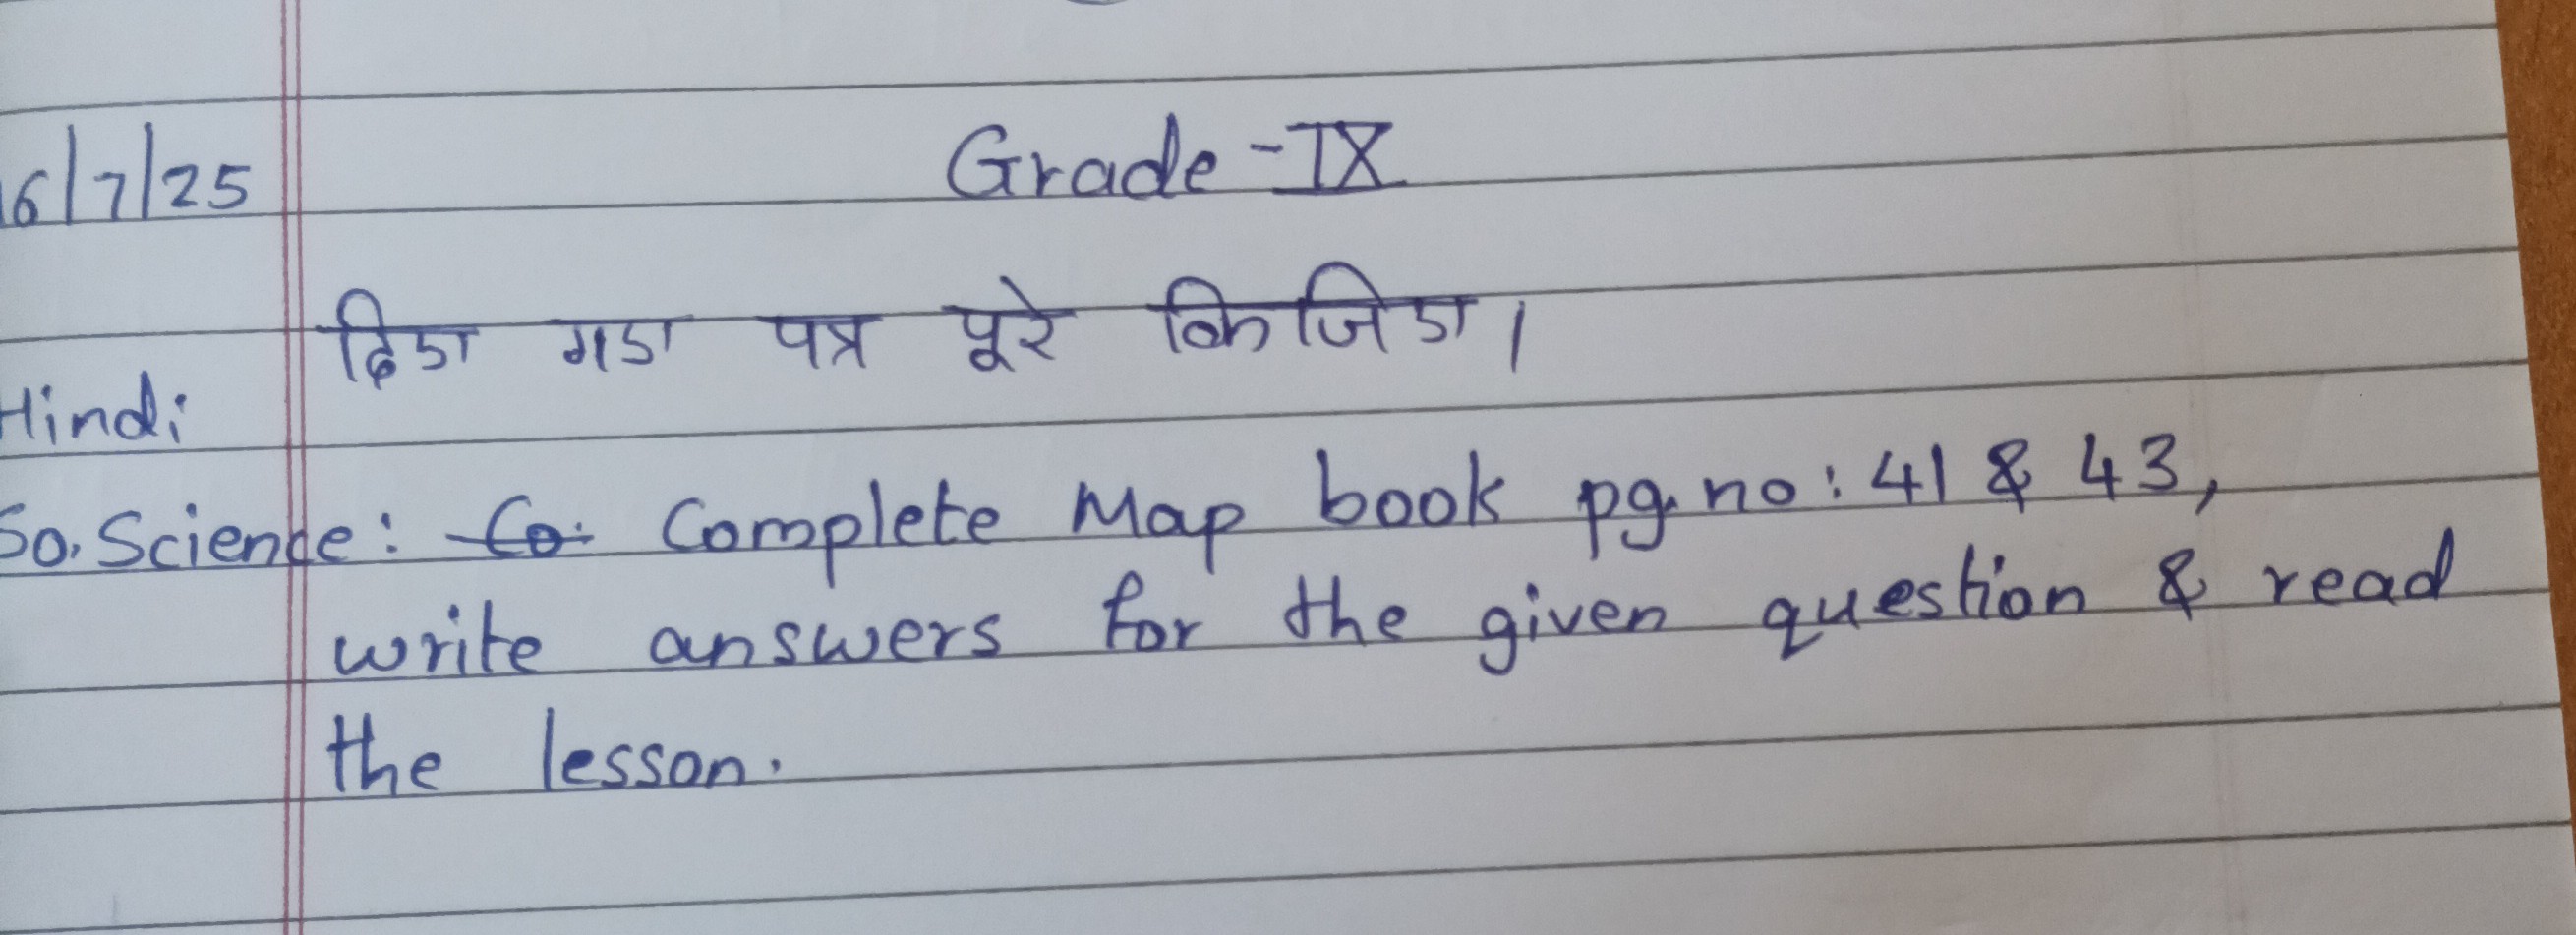 16/7/25 Grade-IX
दिए गए पत्र पूरे किजिए।
Hindi
So. Science: Complete Map book pg. no: 41 & 43,
write answers for the given question & read
the lesson.